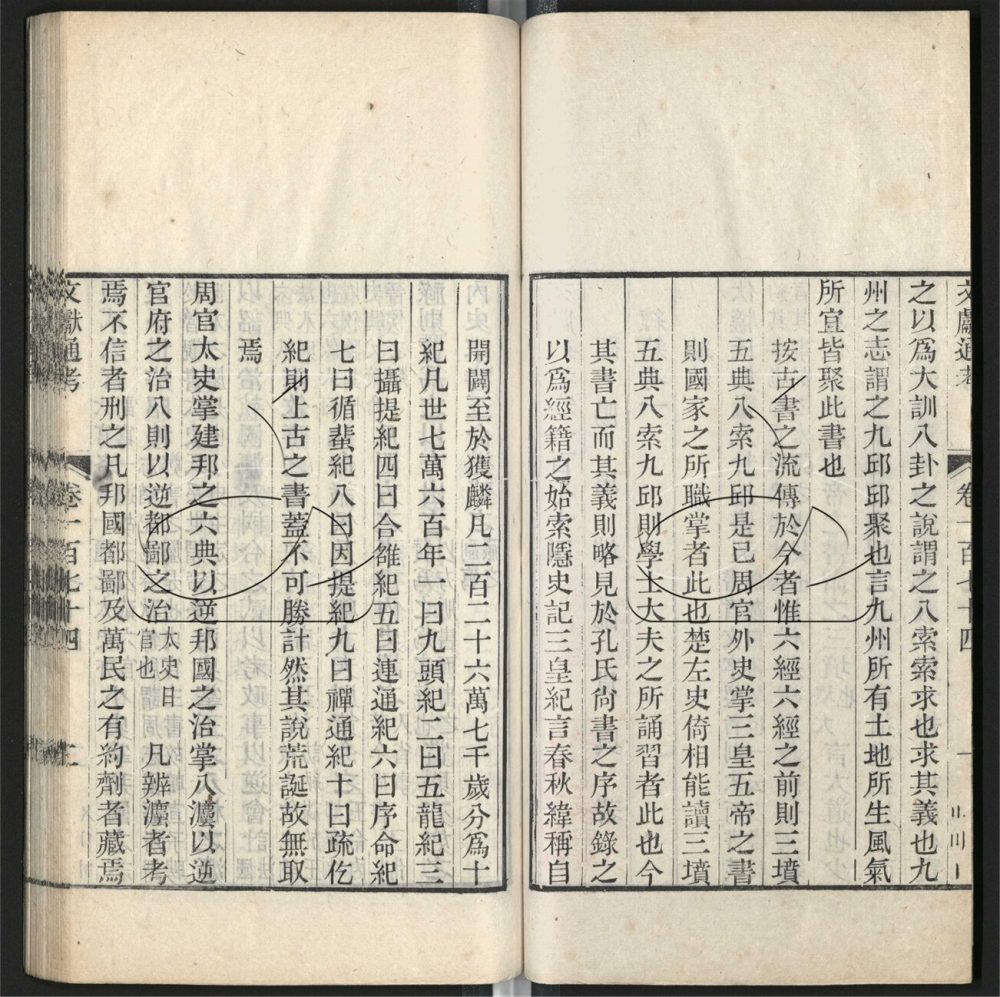 之以爲大訓八卦之說謂之八索索求也求其義也九
州之志謂之九邱邱聚也言九州所有土地所生風氣
所宜皆聚此書也
按古書之流傳於今者惟六經六經之前則三墳
五典八索九邱是已周官外史掌三皇五帝之書
則國家之所職掌者此也楚左史倚相能讀三墳
五典八索九邱則學士大夫之所誦習者此也今
其書亡而其義則略見於孔氏尙書之序故錄之
以爲經籍之始索隱史記三皇紀言春秋緯稱自
開闢至於獲麟凡三百二十六萬七千歲分爲十
紀凡世七萬六百年一曰九頭紀二曰五龍紀三
曰攝提紀四曰合雒紀五曰連通紀六曰序命紀
七曰循蜚紀八曰因提紀九曰禪通紀十曰疏仡
紀則上古之書蓋不可勝計然其說荒誕故無取
焉
周官太史掌建邦之六典以逆邦國之治掌八灋以逆
官府之治八則以逆都鄙之治太史日官也凡辨灋者考
焉不信者刑之凡邦國都鄙及萬民之有約劑者藏焉
文獻通考 卷一百七十四 二